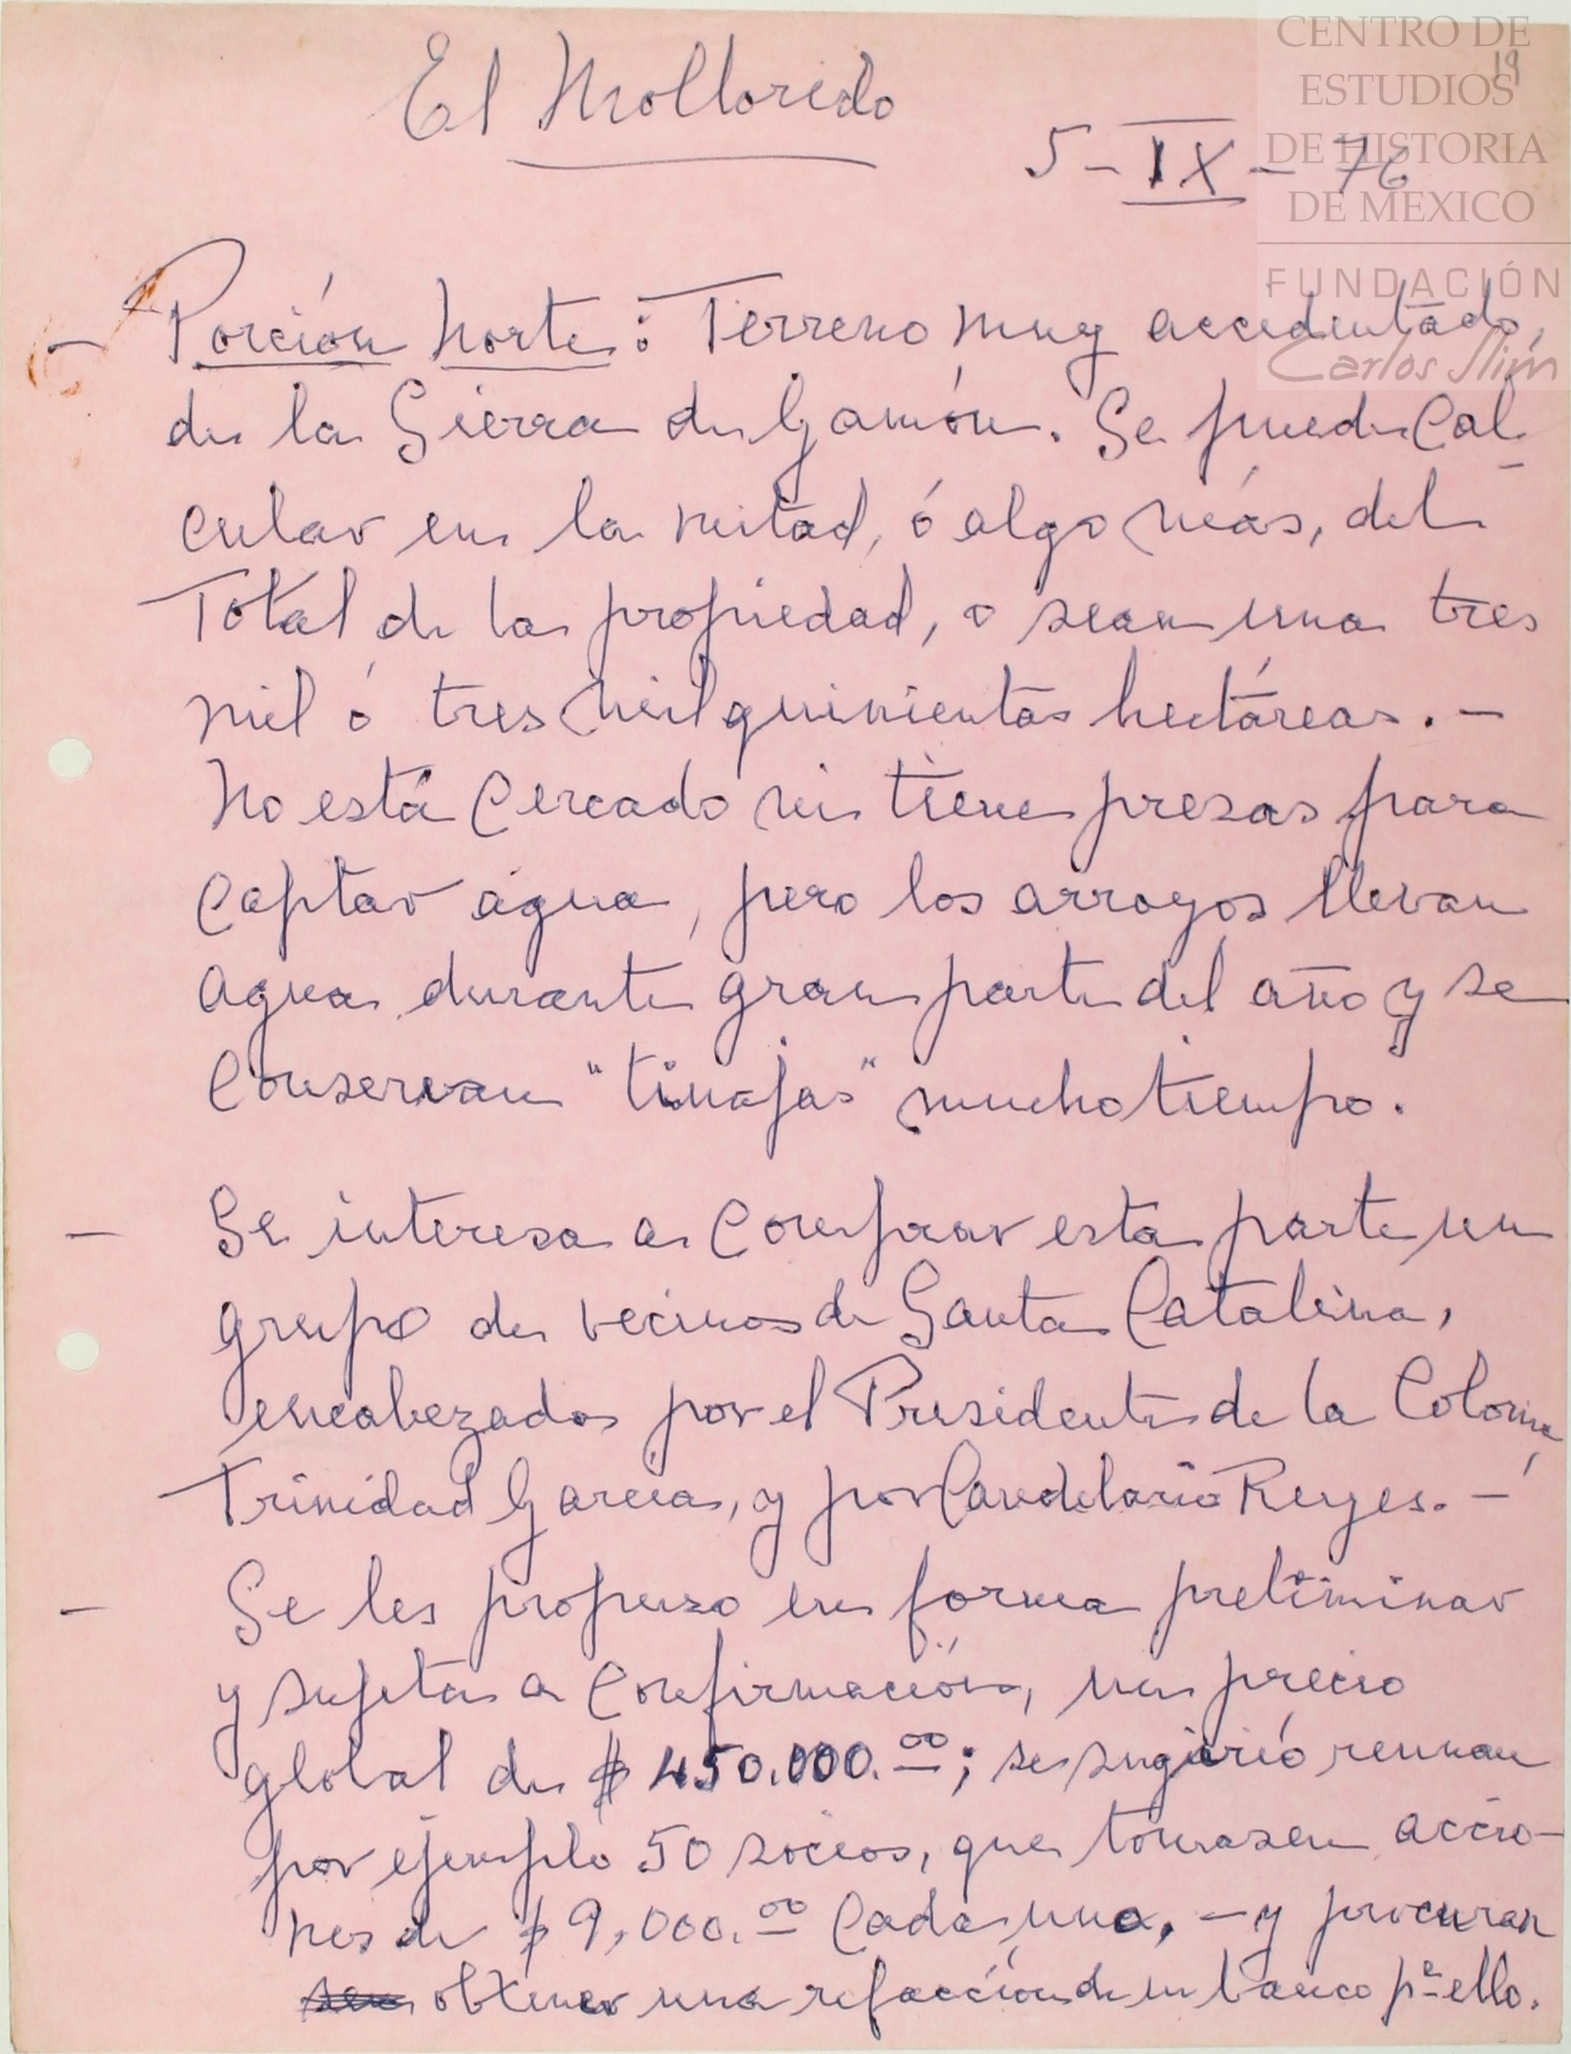 CENTRO DE
ESTUDIOS
DE HISTORIA
DE MEXICO
FUNDACIÓN
Carlos Slim
19
El Mollorido
5-IX-76
- Porción Norte: Terreno muy accedentado,
de la Sierra de Gamón. Se puede cal-
cular en la mitad, ó algo más, del
Total de la propiedad, o sean una tres
mil ó tres mil quinientas hectáreas.-
No está cercado ni tiene presas para
captar agua, pero los arroyos llevan
agua durante gran parte del año y se
conservan "tinajas" mucho tiempo.
- Se interesa a comprar esta parte un
grupo de vecinos de Santa Catalina,
encabezados por el Presidente de la Colonia
Trinidad García, y por Candelario Reyes.-
- Se les propuso en forma preliminar
y sujeta a confirmación, un precio
global de $450.000.00; se sugirió reunan
por ejemplo 50 socios, que tomasen accio-
nes de $9,000.00 cada uno, - y procuran
obtener una refacción de un banco pa ello.